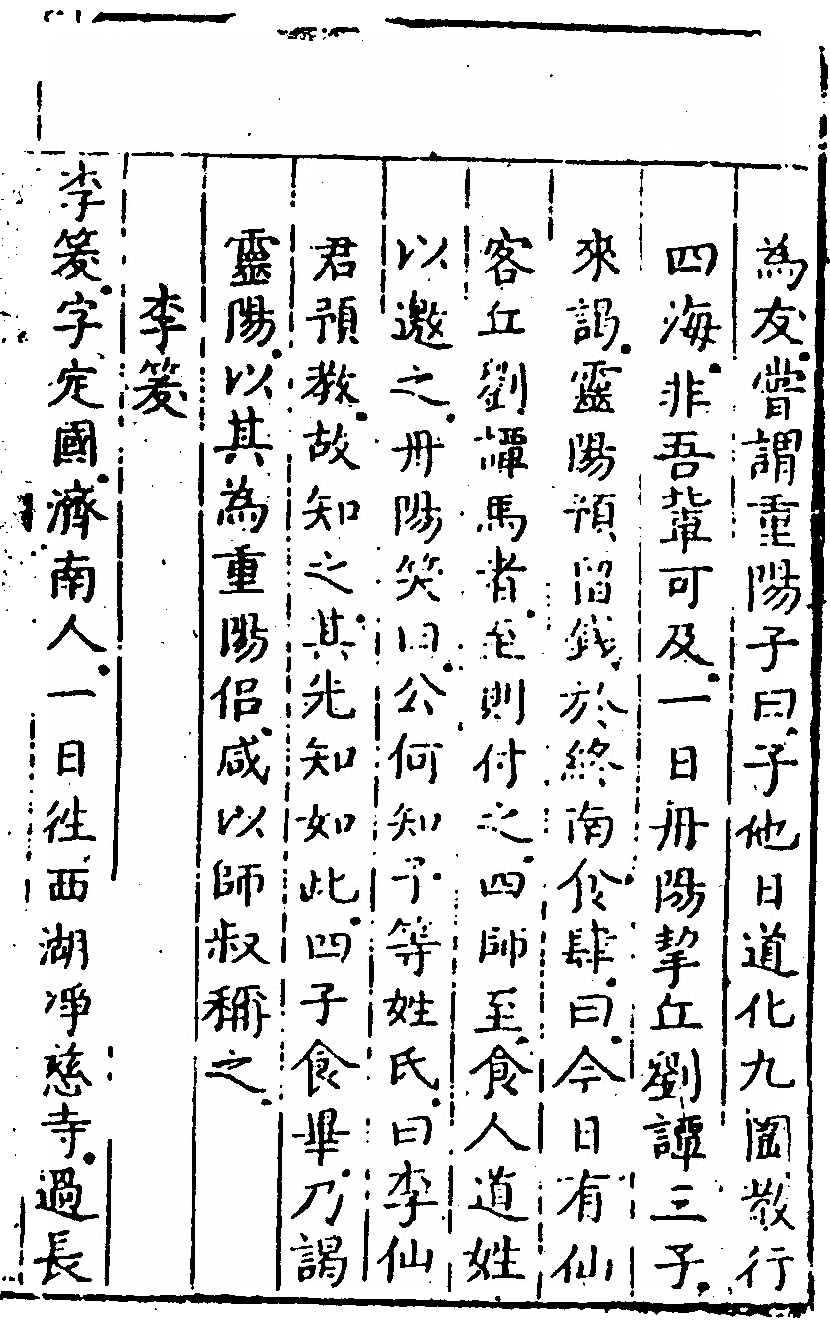 為友嘗謂重陽子曰子他日道化九圍教行
四海非吾輩可及一日丹陽挈丘劉譚三子
來謁靈陽預留錢於終南食肆曰今日有仙
客丘劉譚馬者至則付之四師至食人道姓
以邀之丹陽笑曰公何知予等姓氏曰李仙
君預教故知之其先知如此四子食畢乃謁
靈陽以其為重陽侶咸以師叔稱之
李笈
李笈字定國濟南人一日徃西湖淨慈寺過長